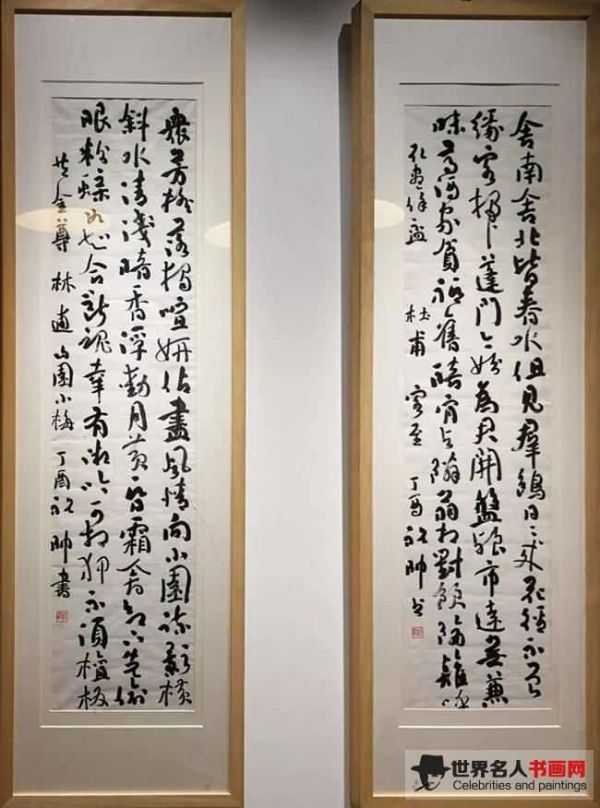 舍南舍北皆春水但見群鷗日々來花徑不曾
緣客掃蓬門今始為君開盤飧市遠無兼
味尊酒家貧祗舊醅肯與隣翁相對飲隔籬呼
取盡餘盃 杜甫 客至 丁酉 祝帥書
眾芳搖落獨喧妍佔盡風情向小園疏影橫
斜水清淺暗香浮動月黃昏霜禽欲下先偷
眼粉蝶如知合斷魂幸有微吟可相狎不須檀板
共金尊 林逋 山園小梅 丁酉 祝帥書
世界名人书画网
Celebrities and paintings